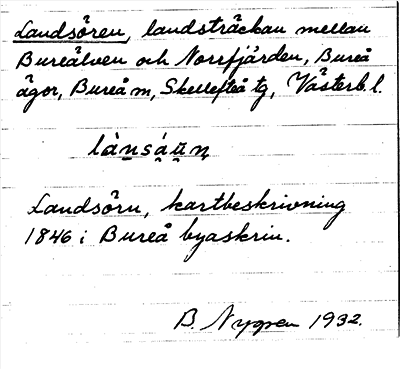 Landsören, landsträckan mellan
Bureälven och Norrfjärden, Bureå
ägor, Bureå m, Skellefteå tg, Västerb. l.
Landsörn, kartbeskrivning
1846 i Bureå byaskrin.
B. Nygren 1932.